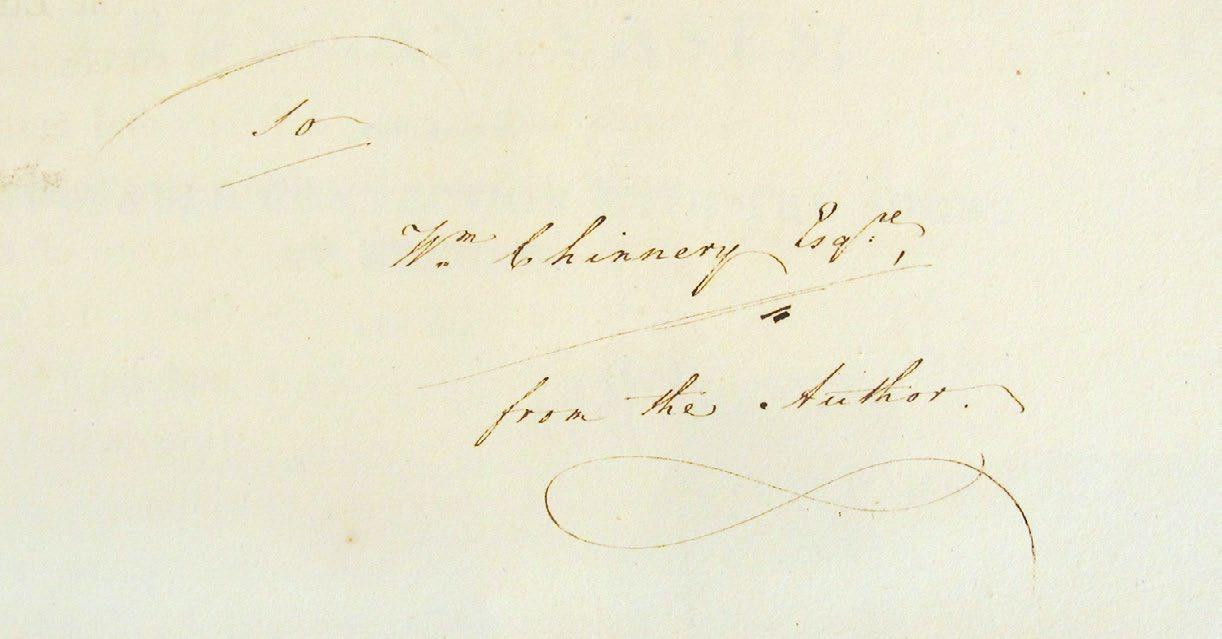 To
Wm. Chinnery Esqre,
from the Author.